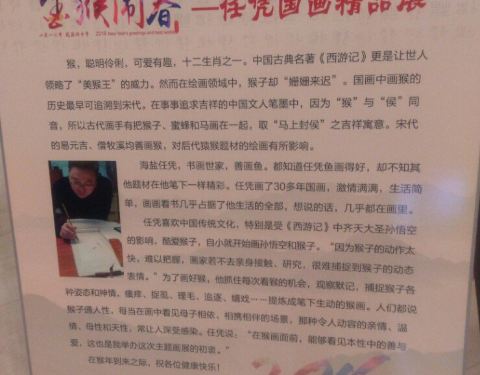 金猴闹春—任凭国画精品展
猴,聪明伶俐,可爱有趣,十二生肖之一。中国古典名著《西游记》更是让世人
领略了“美猴王”的威力。然而在绘画领域中,猴子却“姗姗来迟”。国画中画猴的
历史最早可追溯到宋代。在事事追求吉祥的中国文人笔墨中,因为“猴”与“侯”同
音,所以古代画手有把猴子、蜜蜂和马画在一起,取“马上封侯”之吉祥寓意。宋代
的易元吉、僧牧溪均善画猴,对后代猿猴题材的绘画有所影响。
海盐任凭,书画世家,善画鱼。都知道任凭鱼画得好,却不知其
他题材在他笔下一样精彩。任凭画了30多年国画,激情满满,生活简
单,画画看书几乎占据了他生活的全部,想说的话,几乎都在画里。
任凭喜欢中国传统文化,特别是受《西游记》中齐天大圣孙悟空
的影响,酷爱猴子,自小就开始画孙悟空和猴子。“因为猴子的动作太
快,难以把握,画家若不去亲身接触、研究,很难捕捉到猴子的动态
表情。”为了画好猴,他抓住每次看猴的机会,观察默记,捕捉猴子各
种姿态和神情,瘙痒、捉虱、理毛、追逐、嬉戏……提炼成笔下生动的猴画。人们都说
猴子通人性,每当在画中看见母子相依、相携相伴的场景,那种令人动容的亲情、温
情、母性和天性,常让人深受感染。任凭说:“在猴画面前,能够看见本性中的善与
爱,这也是我举办这次主题画展的初衷。”
在猴年到来之际,祝各位健康快乐!